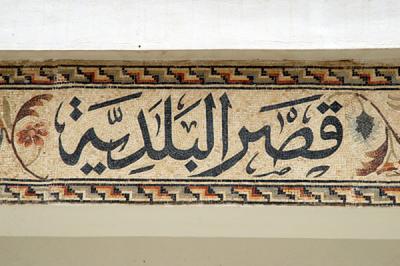 قصر البلديّة